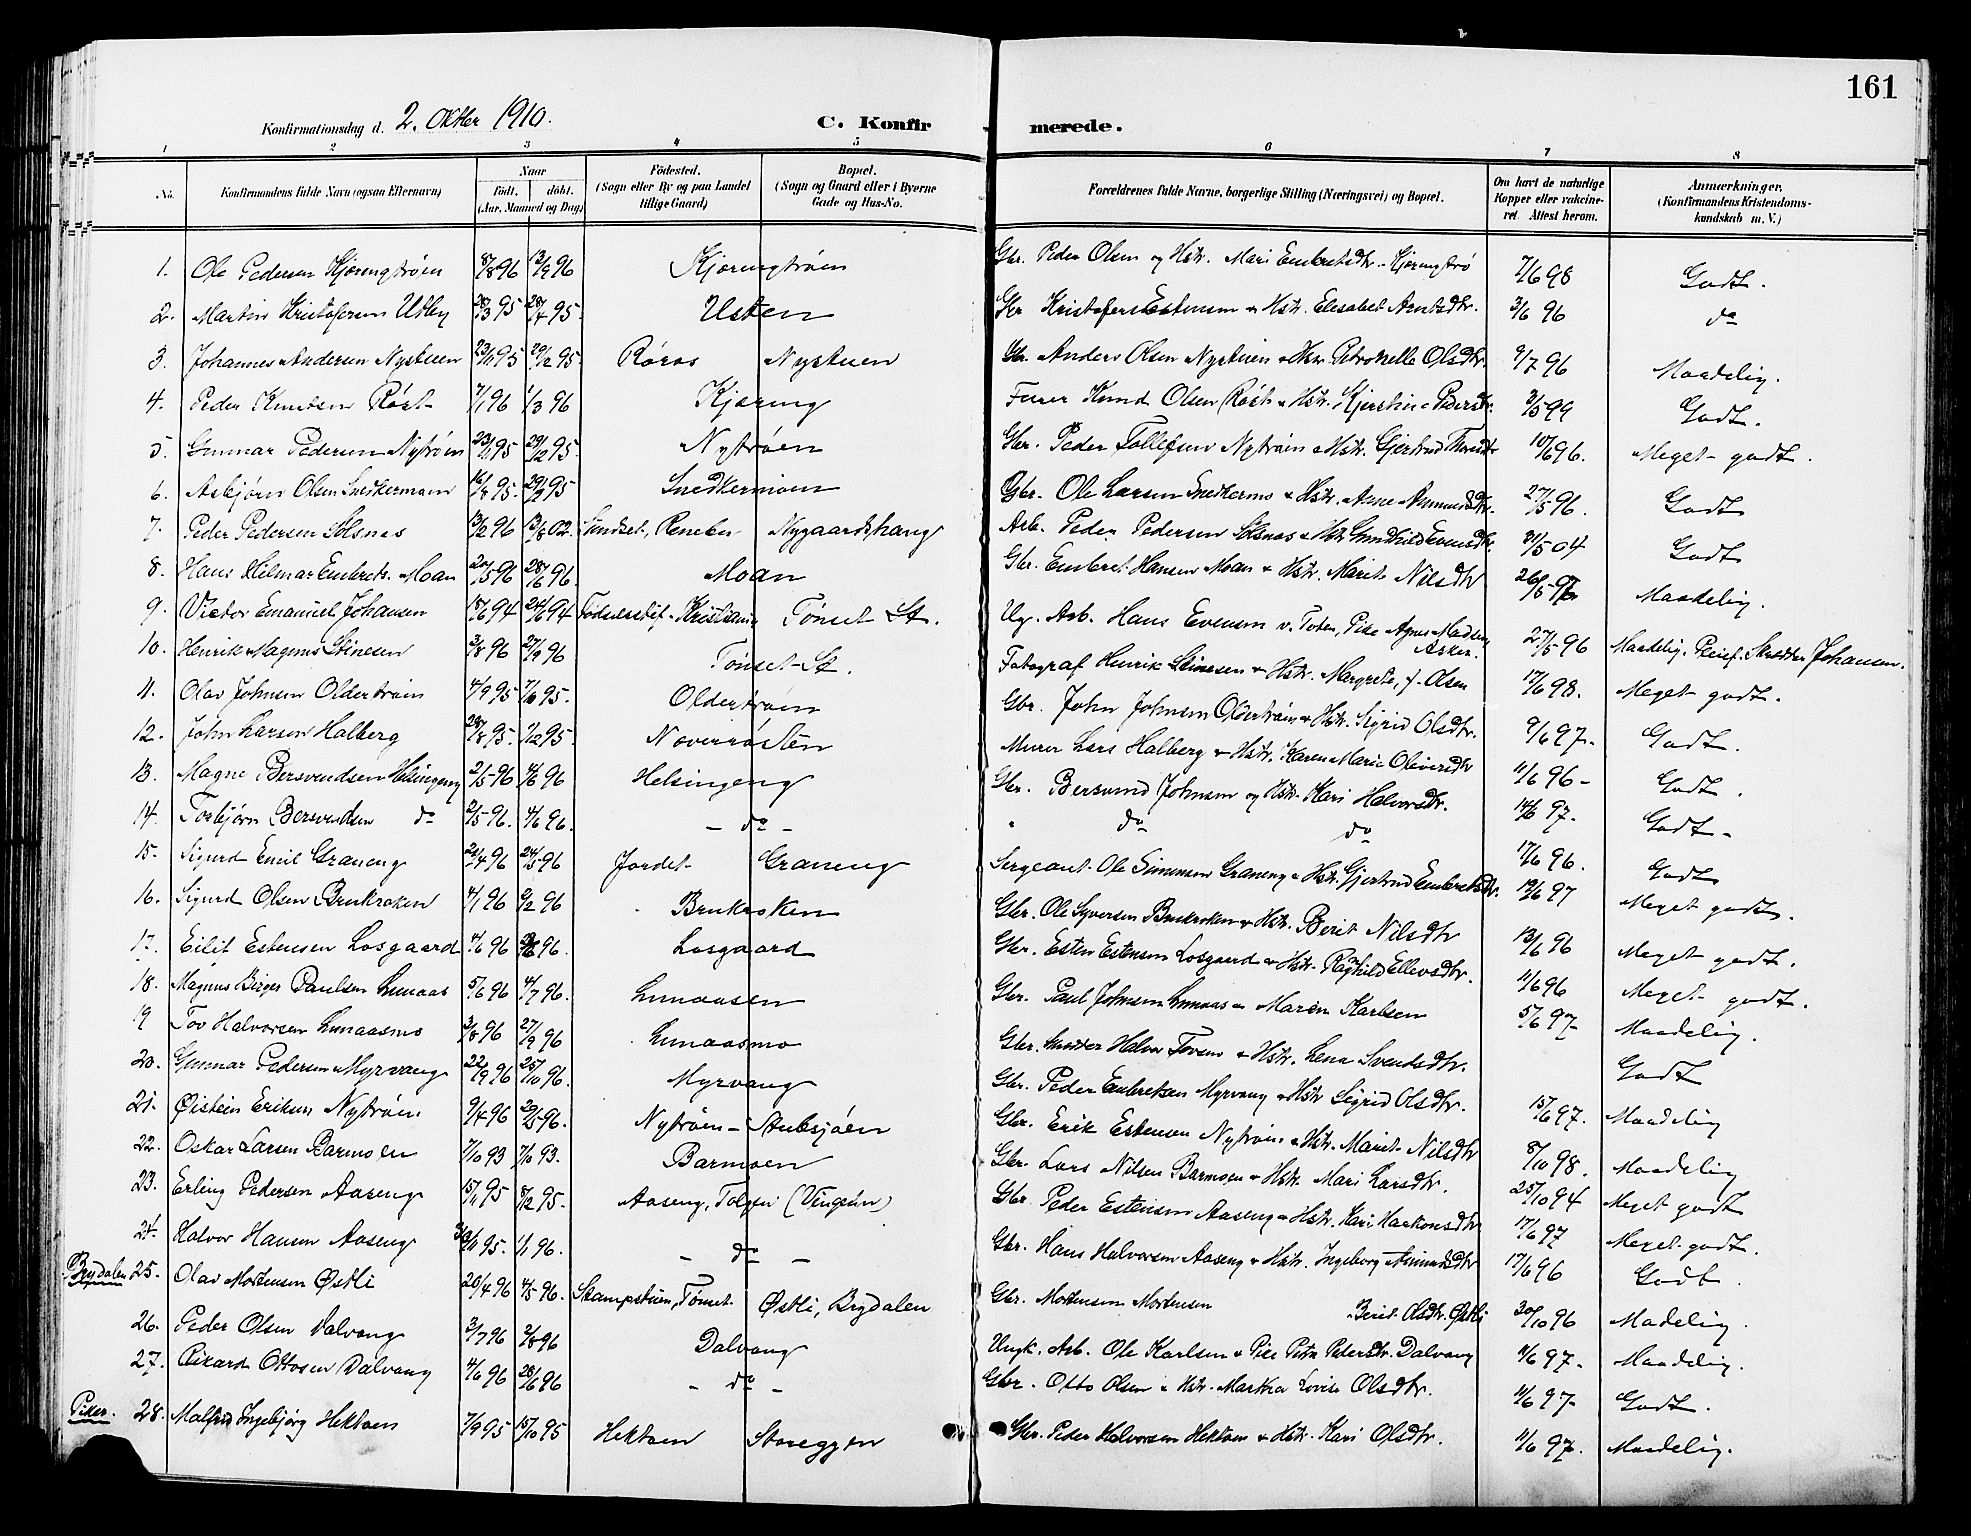 161
Konfirmationsdag d. 2. Oktber 1910.
C. Konfirmerede.
1 2 3 4 5 6 7 8
No. Konfirmandens fulde Navn (ogsaa Efternavn) Naar født, døbt. (Aar, Maaned og Dag) Fødested. (Sogn eller By og paa Landet tillige Gaard) Bopæl. (Sogn og Gaard eller i Byerne Gade og Hus-No. Forældrenes fulde Navne, borgerlige Stilling (Næringsvei) og Bopæl. Om havt de naturlige Kopper eller vakcineret. Attest herom. Anmærkninger. (Konfirmandens Kristendomskundskab m. V.)
1. Ole Pedersen Kjørengtrøen 8/8 96 13/9 96 Kjørengtrøen Gbr. Peder Olsen og Hstr. Mari Embretsdtr. Kjørengtrø 7/6 98 Godt.
2. Martin Kristofersen Utby 28/3 95 28/4 95. Usten Gbr Kristofer Estensen & Hstr. Elisabet Arntsdtr. 3/6 96 do
3. Johannes Andersen Nystuen 23/11 95 29/12 95. Røros Nystuen Gbr. Anders Olsen Nystuen & Hstr. Petronelle Olsdtr. 9/7 96 Maadelig.
4. Peder Knutsen Røst 7/1 96 1/3 96 Kjøreng Furer Knud Olsen Røst & Hstr. Kjerstine Pedersdtr. 3/5 99 Godt.
5. Gunnar Pedersen Nytrøen 23/11 95 29/12 95. Nytrøen Gbr. Peder Tollefsen Nytrøen & Hstr. Gjertrud Thorsdtr 10/6 96. Meget godt.
6. Asbjørn Olsen Snedkermoen 16/8 95. 29/9 95 Snedkermoen Gbr. Ole Larsen Snedkermo & Hstr. Anne Amundsdtr. 27/5 96. Godt
7. Peder Pedersen Solsnes 13/2 96 13/8 02. Sundset, Renebu Nygaardshaug Arb. Peder Pedersen Solsnes & Hstr Gunhild Evensdtr. 31/5 04 Godt
8. Hans Hilmar Embrets. Moan 20/5 96 28/6 96. Moan Gbr. Embret Hansen Moan & Hstr. Marit Nilsdtr 26/5 97 Maadelig.
9. Victor Emanuel Johansen 18/6 94 24/6 94 Fødselsstif. Kristiania Tønset St. Ug. Arb. Hans Evensen v. Toten, Pike Agnes Madsen, Asker. 27/5 96 Maadelig. Pleief. Skrædder Johansen.
10. Henrik Magnus Stinesen 3/8 96 27/9 96 Tønset St. Fotograf Henrik Stinesen & Hstr. Margrete, f. Olsen 17/6 98. Meget godt.
11. Olav Johnsen Oldertrøen 4/9 95 7/10 95. Oldertrøen Gbr. John Johnsen Oldertrøen & Hstr. Sigrid Olsdtr. 9/6 97. Godt.
12. John Larsen Halberg 28/8 95. 1/12 95. Noverrøsten Murer Lars Halberg & Hstr. Karen Marie Oliversdtr 11/6 96 Godt.
13. Magne Bersvendsen Helsingeng 2/5 96 4/6 96 Helsingeng Gbr. Bersvend Johnsen og Hstr. Kari Halvorsdtr. 14/6 97. Godt.
14. Torbjørn Bersvendsen do 2/5 96. 4/6 96. - do - " do do 17/6 96. Godt
15. Sigurd Emil Graneng 21/4 96 24/5 96 Jordet Graneng Sergeant Ole Simensen Graneng & Hstr. Gjertrud Embretsdtr. 19/6 97 Meget godt.
16. Sigurd Olsen Brukroken 4/1 96 9/2 96 Brukroken Gbr. Ole Syversen Brukroken & Hstr. Berit Nilsdtr 13/6 96 Meget godt.
17. Eilif Estensen Losgaard 4/6 96 96. Losgaard Gbr. Esten Estensen Losgaard & Hstr. Raghild Ellevsdtr. 11/6 96 Meget godt.
18. Magnus Birger Paulsen Lunaas 5/6 96 4/7 96. Lunaasen Gbr. Paul Johnsen Lunaas & Maren Karlsen 5/6 97 Maadelig.
19 Tov Halvorsen Lunaasmo 3/8 96 27/9 96 Lunaasmo Gbr. Skrædder Halvor Tovens & Hstr. Lena Svendsdtr. Godt
20. Gunnar Pedersen Myrvang 22/9 96 25/10 96. Myrvang Gbr. Peder Embretsen Myrvang & Hstr Sigrid Olsdtr. 15/6 97. Maadelig
21. Øistein Eriksen Nytrøen 9/4 96 29/5 96. Nytrøen - Stubsjøen Gbr. Erik Estensen Nytrøen & Hstr. Marit Nilsdtr 8/10 98. Maadelig
22. Oskar Larsen Barmoen 7/10 93 7/10 93. Barmoen Gbr. Lars Nilsen Barmoen & Hstr. Mari Larsdtr. 25/10 94 Meget godt
23. Erling Pedersen Aaseng 15/11 95 8/12 95. Aaseng, Tolgen (Vingelen) Gbr. Peder Estensen Aaseng & Hstr. Kari Haakonsdtr 17/6 97 Meget godt.
24. Halvor Hansen Aaseng 30/11 95. 1/1 96. - do - Gbr. Hans Halvorsen Aaseng & Hstr. Ingeborg Amundsdtr 17/6 96 Godt.
Brydalen 25. Olav Mortensen Østli 20/4 96 4/5 96. Stampstuen, Tønset. Østli, Brydalen Gbr. Mortensen Mortensen Berit Olsdtr. Østli 30/10 96 Madelig.
26. Peder Olsen Dalvang 3/7 96 2/8 96 Dalvang Ungk. Arb. Ole Karlsen & Pige Petra Pedersdtr. Dalvang 11/6 97. Maadelig.
27. Rikard Ottosen Dalvang 4/6 96 28/6 96 - do - Gbr. Otto Olsen & Hstr. Martha Lovise Olsdtr. 11/6 97 Godt.
Piker. 28. Malfrid Ingebjørg Hektoen 7/9 95 15/10 95 Hektoen Storeggen Gbr. Peder Halvorsen Hektoen & Hstr. Kari Olsdtr. 11/6 97. Maadelig.